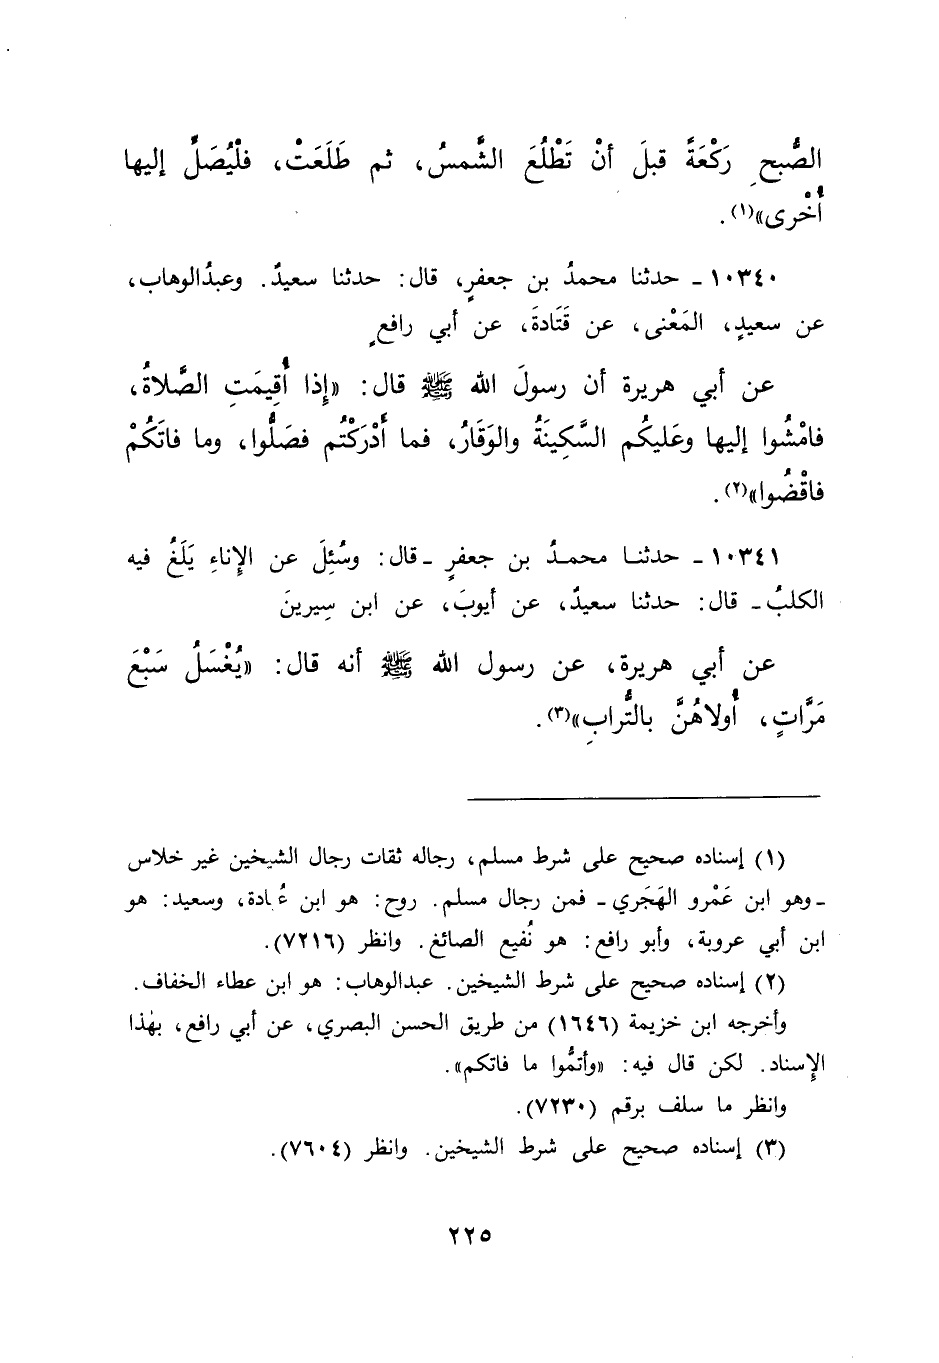 الصُّبحِ رَكْعَةً قبلَ أنْ تَطْلُعَ الشَّمسُ، ثم طَلَعَتْ، فلْيُصَلِّ إليها
أُخْرى»(١).
١٠٣٤٠ ـ حدثنا محمدُ بن جعفرٍ، قال: حدثنا سعيدٌ. وعبدُالوهاب،
عن سعيدٍ، المَعْنى، عن قَتَادةَ، عن أبي رافعٍ
عن أبي هريرة أن رسولَ الله ﷺ قال: «إِذا أُقِيمَتِ الصَّلاةُ،
فامْشُوا إليها وعَليكُم السَّكِينَةُ والوَقَارُ، فما أَدْرَكْتُم فصَلُّوا، وما فاتَكُمْ
فاقْضُوا»(٢).
١٠٣٤١ ـ حدثنا محمدُ بن جعفرٍ ـ قال: وسُئِلَ عن الإِناءِ يَلَغُ فيه
الكلبُ ـ قال: حدثنا سعيدٌ، عن أيوبَ، عن ابن سِيرينَ
عن أبي هريرة، عن رسول الله ﷺ أنه قال: «يُغْسَلُ سَبْعَ
مَرَّاتٍ، أُولاهُنَّ بالتُّرابِ»(٣).
(١) إسناده صحيح على شرط مسلم، رجاله ثقات رجال الشيخين غير خلاس
ـ وهو ابن عَمْرو الهَجَري ـ فمن رجال مسلم. روح: هو ابن عُبادة، وسعيد: هو
ابن أبي عروبة، وأبو رافع: هو نُفيع الصائغ. وانظر (٧٢١٦).
(٢) إسناده صحيح على شرط الشيخين. عبدالوهاب: هو ابن عطاء الخفاف.
وأخرجه ابن خزيمة (١٦٤٦) من طريق الحسن البصري، عن أبي رافع، بهٰذا
الإِسناد. لكن قال فيه: «وأتمُّوا ما فاتكم».
وانظر ما سلف برقم (٧٢٣٠).
(٣) إسناده صحيح على شرط الشيخين. وانظر (٧٦٠٤).
٢٢٥